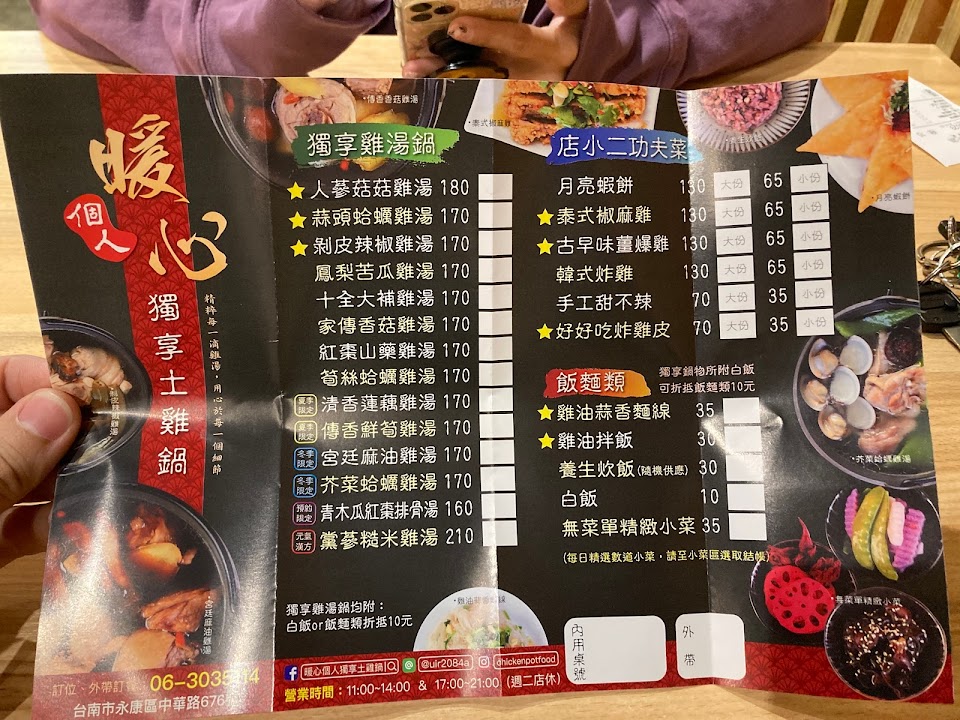 暖心
個人
獨享土雞鍋
精粹每一滴雞湯,用心於每一個細節
•傳香香菇雞湯
獨享雞湯鍋
人蔘菇菇雞湯 180
蒜頭蛤蠣雞湯 170
剝皮辣椒雞湯 170
鳳梨苦瓜雞湯 170
十全大補雞湯 170
家傳香菇雞湯 170
紅棗山藥雞湯 170
筍絲蛤蠣雞湯 170
夏季限定 清香蓮藕雞湯 170
夏季限定 傳香鮮筍雞湯 170
冬季限定 宮廷麻油雞湯 170
冬季限定 芥菜蛤蠣雞湯 170
預約限定 青木瓜紅棗排骨湯 160
元氣漢方 黨蔘糙米雞湯 210
獨享雞湯鍋均附:
白飯or飯麵類折抵10元
•宮廷麻油雞湯
•雞油蒜香麵線
店小二功夫菜
月亮蝦餅 130 大份 65 小份
泰式椒麻雞 130 大份 65 小份
古早味薑爆雞 130 大份 65 小份
韓式炸雞 130 大份 65 小份
手工甜不辣 70 大份 35 小份
好好吃炸雞皮 70 大份 35 小份
•月亮蝦餅
飯麵類
獨享鍋物所附白飯
可折抵飯麵類10元
雞油蒜香麵線 35
雞油拌飯 30
養生炊飯(隨機供應) 30
白飯 10
無菜單精緻小菜 35
(每日精選數道小菜,請至小菜區選取結帳)
•芥菜蛤蠣雞湯
•無菜單精緻小菜
內用桌號
外帶
訂位、外帶訂 06-3035
台南市永康區中華路676
暖心個人獨享土雞鍋 @uir2084a chickenpotfood
營業時間:11:00~14:00 & 17:00~21:00 (週二店休)